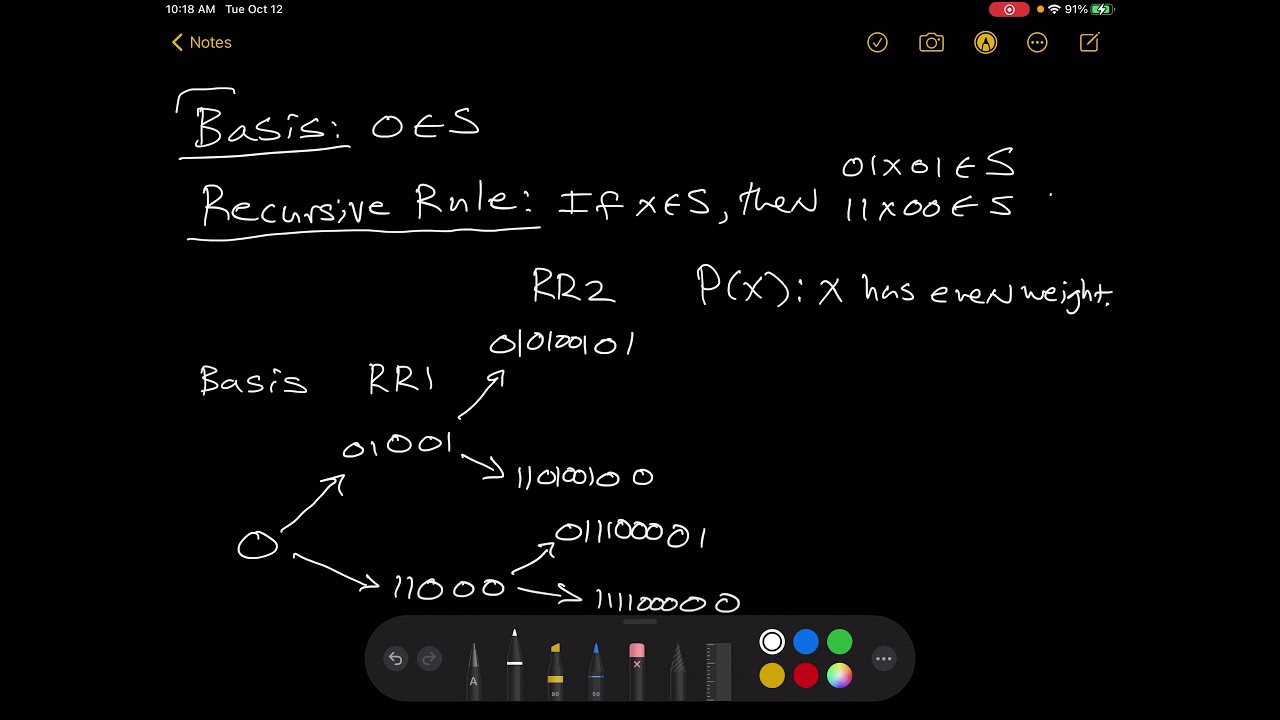 10:18 AM Tue Oct 12
91%
Notes
Basis: 0∈S
Recursive Rule: If x∈S, then 01x01∈S
11x00∈S
RR2 P(x): x has even weight.
010100101
Basis RR1
01001
110100100
011100001
0
11000
111100000
A
80
50